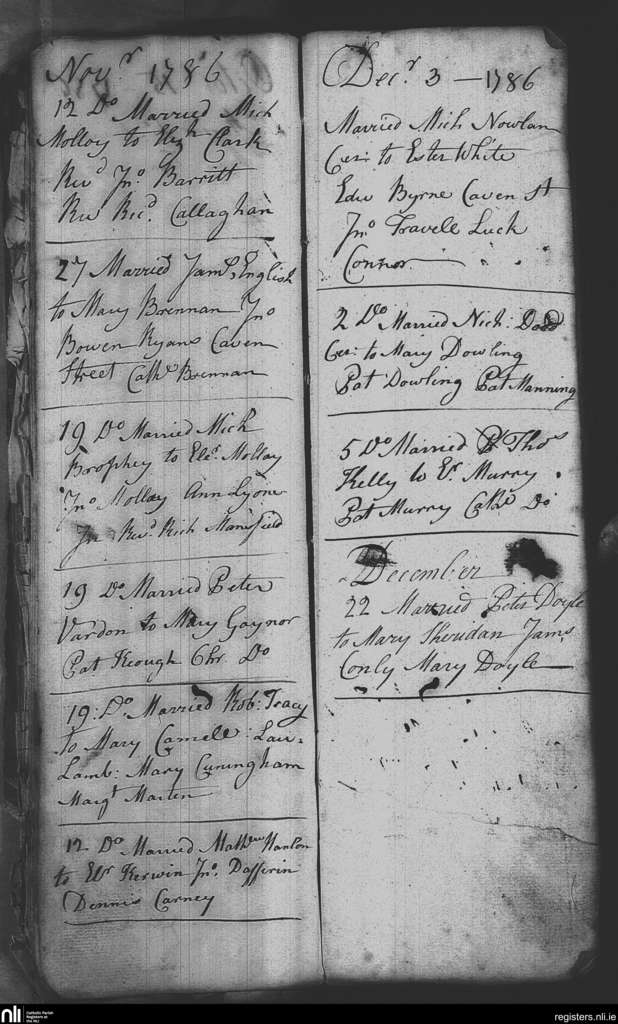 Novr 1786
12 Do Married Mich
Molloy to Elizh Clark
Revd Jno Barritt
Rev Ricd Callaghan
27 Married Jams English
to Mary Brennan Jno
Bowen Ryans Caven
Street Cathe Brennan
19 Do Married Mich
Brophey to Elr. Molloy
Jno Molloy Ann Lyons
Revd Rich Mansfield
19 Do Married Peter
Vardon to Mary Gaynor
Pat Keough Chr. Do
19: Do Married Rob: Tracy
to Mary Camell: Law:
Lamb: Mary Cuningham
Margt Martin
12 Do Married Mathew Hanlon
to Elr Kerwin Jno. Dafferin
Dennis Carney
Decr 3 — 1786
Married Mich Nowlan
to Ester White
Edw Byrne Caven St
Jno Travell Luck
Connor
2 Do Married Nich: Dodd
to Mary Dowling
Pat Dowling Pat Manning
5 Do Married Thos
Kelly to Er. Murry
Pat Murry Cathe Do
December
22 Married Peter Doyle
to Mary Sheridan Jams
Conly Mary Doyle
nli
Catholic Parish
Registers at
the NLI
registers.nli.ie